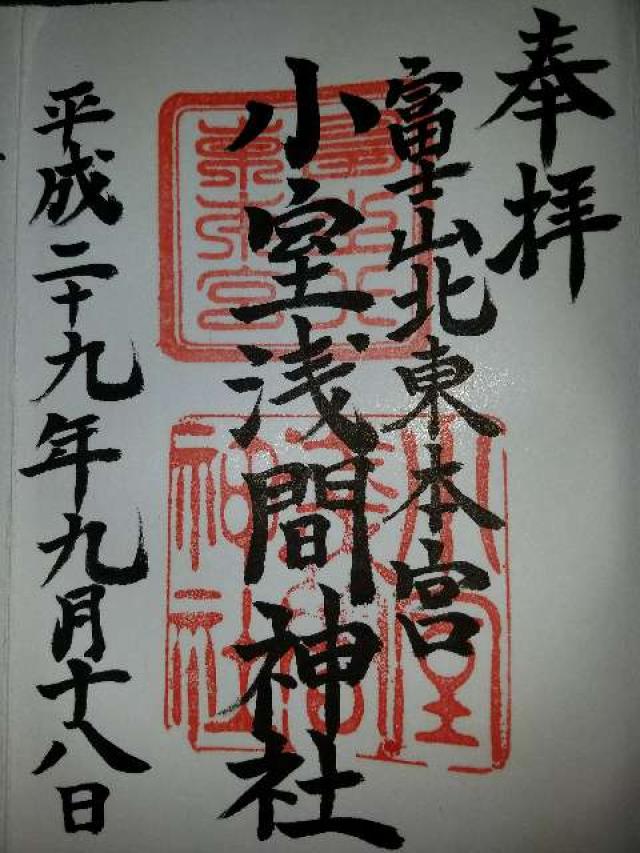 奉拝
富士山北東本宮
小室浅間神社
平成二十九年九月十八日
小室浅間神社